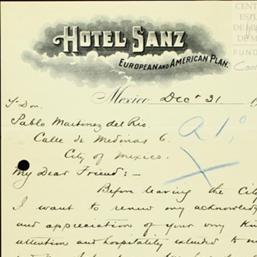 HOTEL SANZ
EUROPEAN AND AMERICAN PLAN.
Mexico, Dec 31
Sr Don
Pablo Martinez del Rio
Calle de Medinas 6.
City of Mexico.
My Dear Friend:-
Before leaving the City
I want to renew my acknowledg
and appreciation of your very kind
attention and hospitality extended to